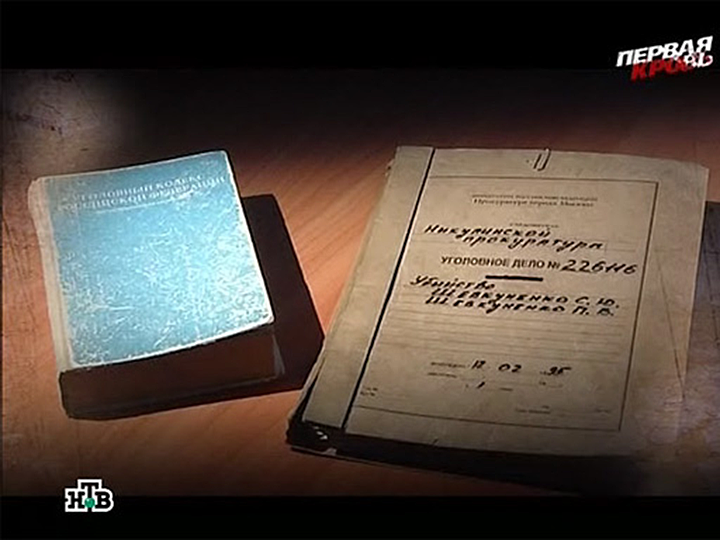 ПЕРВАЯ
КРОВЬ
УГОЛОВНЫЙ КОДЕКС
РОССИЙСКОЙ ФЕДЕРАЦИИ
Прокуратура города Москвы
Никулинской
прокуратуры
УГОЛОВНОЕ ДЕЛО № 226116
Убийство
Шевкуненко С. Ю.
Шевкуненко П. В.
12 02 95
1
НТВ